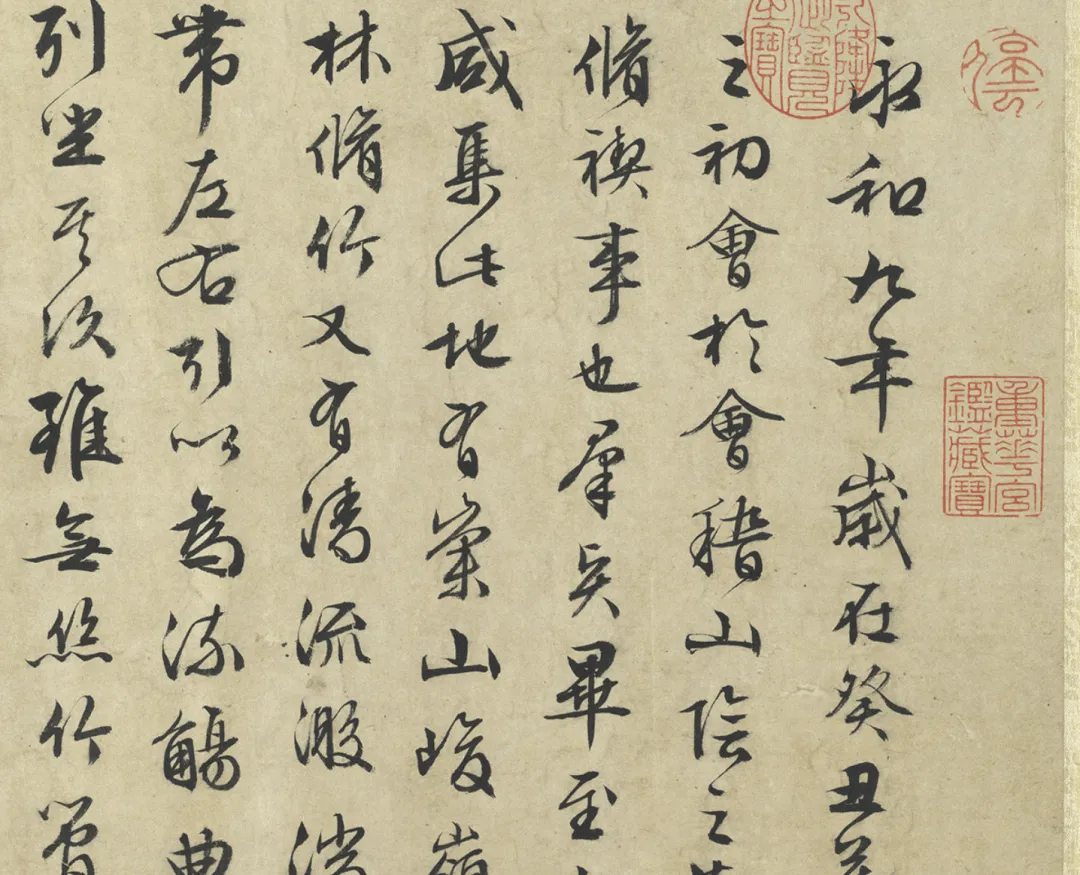 永和九年歲在癸丑
之初會於會稽山陰之
脩禊事也羣賢畢至
咸集此地有崇山峻嶺
林脩竹又有清流激湍
帶左右引以為流觴曲
列坐其次雖無絲竹管
重華宮鑑藏寶
乾隆御覽之寶